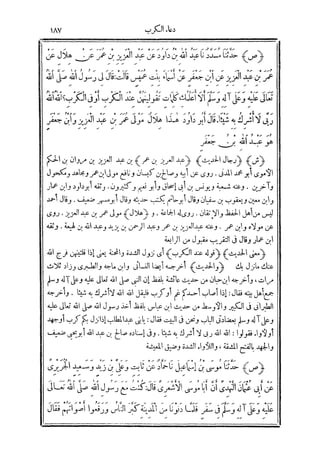 دعاء الكرب ١٨٧
(ص) حَدَّثَنَا مُسَدَّدٌ نَا عَبْدُ اللهِ بْنُ دَاوُدَ عَنْ عَبْدِ الْعَزِيزِ بْنِ عُمَرَ عَنْ هِلَالٍ عَنْ
عُمَرَ بْنِ عَبْدِ الْعَزِيزِ عَنِ ابْنِ جَعْفَرٍ عَنْ أَسْمَاءَ بِنْتِ عُمَيْسٍ قَالَتْ: قَالَ لِي رَسُولُ اللهِ صَلَّى اللهُ
تَعَالَى عَلَيْهِ وَعَلَى آلِهِ وَسَلَّمَ أَلَا أُعَلِّمُكِ كَلِمَاتٍ تَقُولِينَهُنَّ عِنْدَ الْكَرْبِ أَوْ فِي الْكَرْبِ؟ اللهُ اللهُ
رَبِّي لَا أُشْرِكُ بِهِ شَيْئًا. قَالَ أَبُو دَاوُدَ هٰذَا هِلَالٌ مَوْلَى عُمَرَ بْنِ عَبْدِ الْعَزِيزِ وَابْنُ جَعْفَرٍ
هُوَ عَبْدُ اللهِ بْنُ جَعْفَرٍ
(ش) (رجال الحديث) (عبد العزيز بن عمر) بن عبد العزيز بن مروان بن الحكم
الأموى أبو محمد المدنى. روى عن أبيه وصالح بن كيسان ونافع مولى ابن عمر ومجاهد ومكحول
وآخرين. وعنه شعبة ويونس بن أبى إسحاق وأبو نعيم وكثيرون. وثقه أبو داود وابن عمار
وابن معين ويعقوب بن سفيان وقال أبو حاتم يكتب حديثه وقال أبو مسهر ضعيف. وقال أحمد
ليس من أهل الحفظ والإتقان. روى له الجماعة. و (هلال) مولى عمر بن عبد العزيز. روى
عن مولاه وابن عمر. وعنه عبد العزيز بن عمر وعبد الرحمن بن يزيد وعبد الله بن لهيعة. وثقه
ابن عمار وقال فى التقريب مقبول من الرابعة
(معنى الحديث) (قوله عند الكرب) أى نزول الشدة والمحنة يعنى إذا قلتيهن فرج الله
عنك مانزل بك (والحديث) أخرجه أيضا النسائى وابن ماجه والطبرى وزاد ثلاث
مرات، وأخرجه ابن حبان من حديث عائشة بلفظ إن النبى صلى الله تعالى عليه وعلى آله وسلم
جمع أهل بيته فقال: إذا أصاب أحدكم غم أو كرب فليقل الله الله لا أشرك به شيئا. وأخرجه
الطبرانى فى الكبير والأوسط من حديث ابن عباس بلفظ أخذ رسول الله صلى الله تعالى عليه
وعلى آله وسلم بعضادتى الباب ونحن فى البيت فقال: يابنى عبد المطلب إذا نزل بكم كرب أو جهد
أو لأواء فقولوا: الله الله ربى لا أشرك به شيئا. وفى إسناده صالح بن عبد الله أبو يحيى ضعيف
والجهد بالفتح المشقة، واللأواء الشدة وضيق المعيشة
(ص) حَدَّثَنَا مُوسَى بْنُ إِسْمَاعِيلَ نَا حَمَّادٌ عَنْ ثَابِتٍ وَعَلِيِّ بْنِ زَيْدٍ وَسَعِيدٍ الْجُرَيْرِيِّ
عَنْ أَبِي عُثْمَانَ النَّهْدِيِّ أَنَّ أَبَا مُوسَى الْأَشْعَرِيَّ قَالَ: كُنْتُ مَعَ رَسُولِ اللهِ صَلَّى اللهُ تَعَالَى
عَلَيْهِ وَعَلَى آلِهِ وَسَلَّمَ فِي سَفَرٍ فَلَمَّا دَنَوْنَا مِنَ الْمَدِينَةِ كَبَّرَ النَّاسُ وَرَفَعُوا أَصْوَاتَهُمْ فَقَالَ